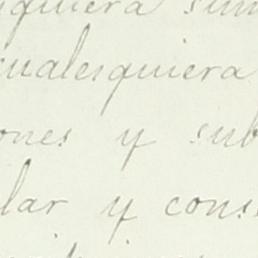 quiera sum
cualesquiera
ones y sub
lar y cons